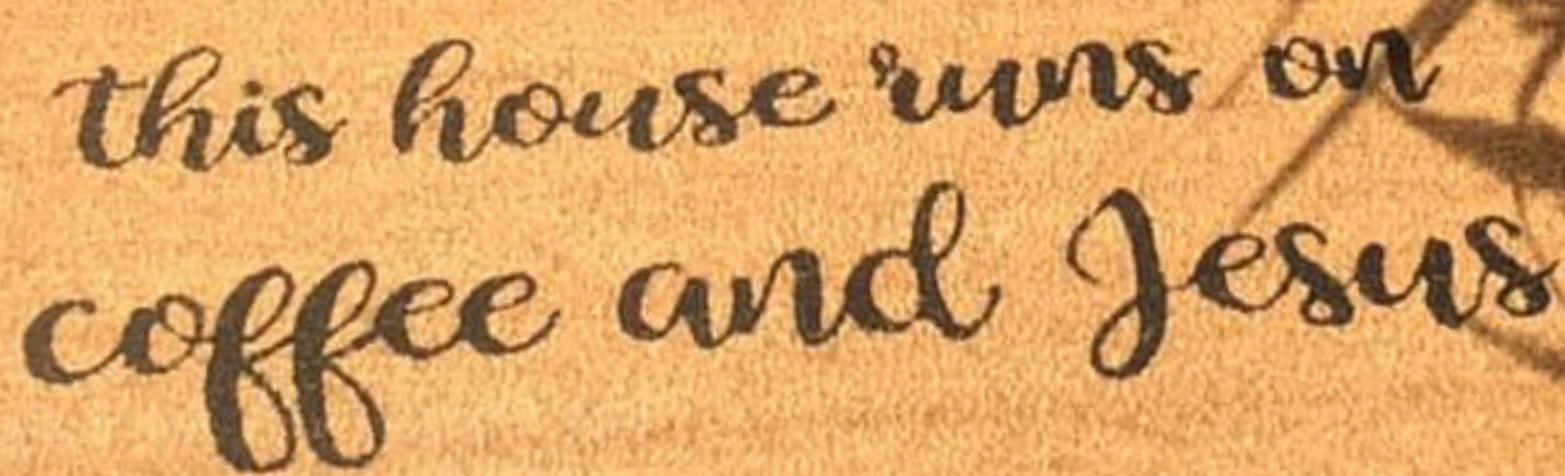 this house runs on
coffee and Jesus